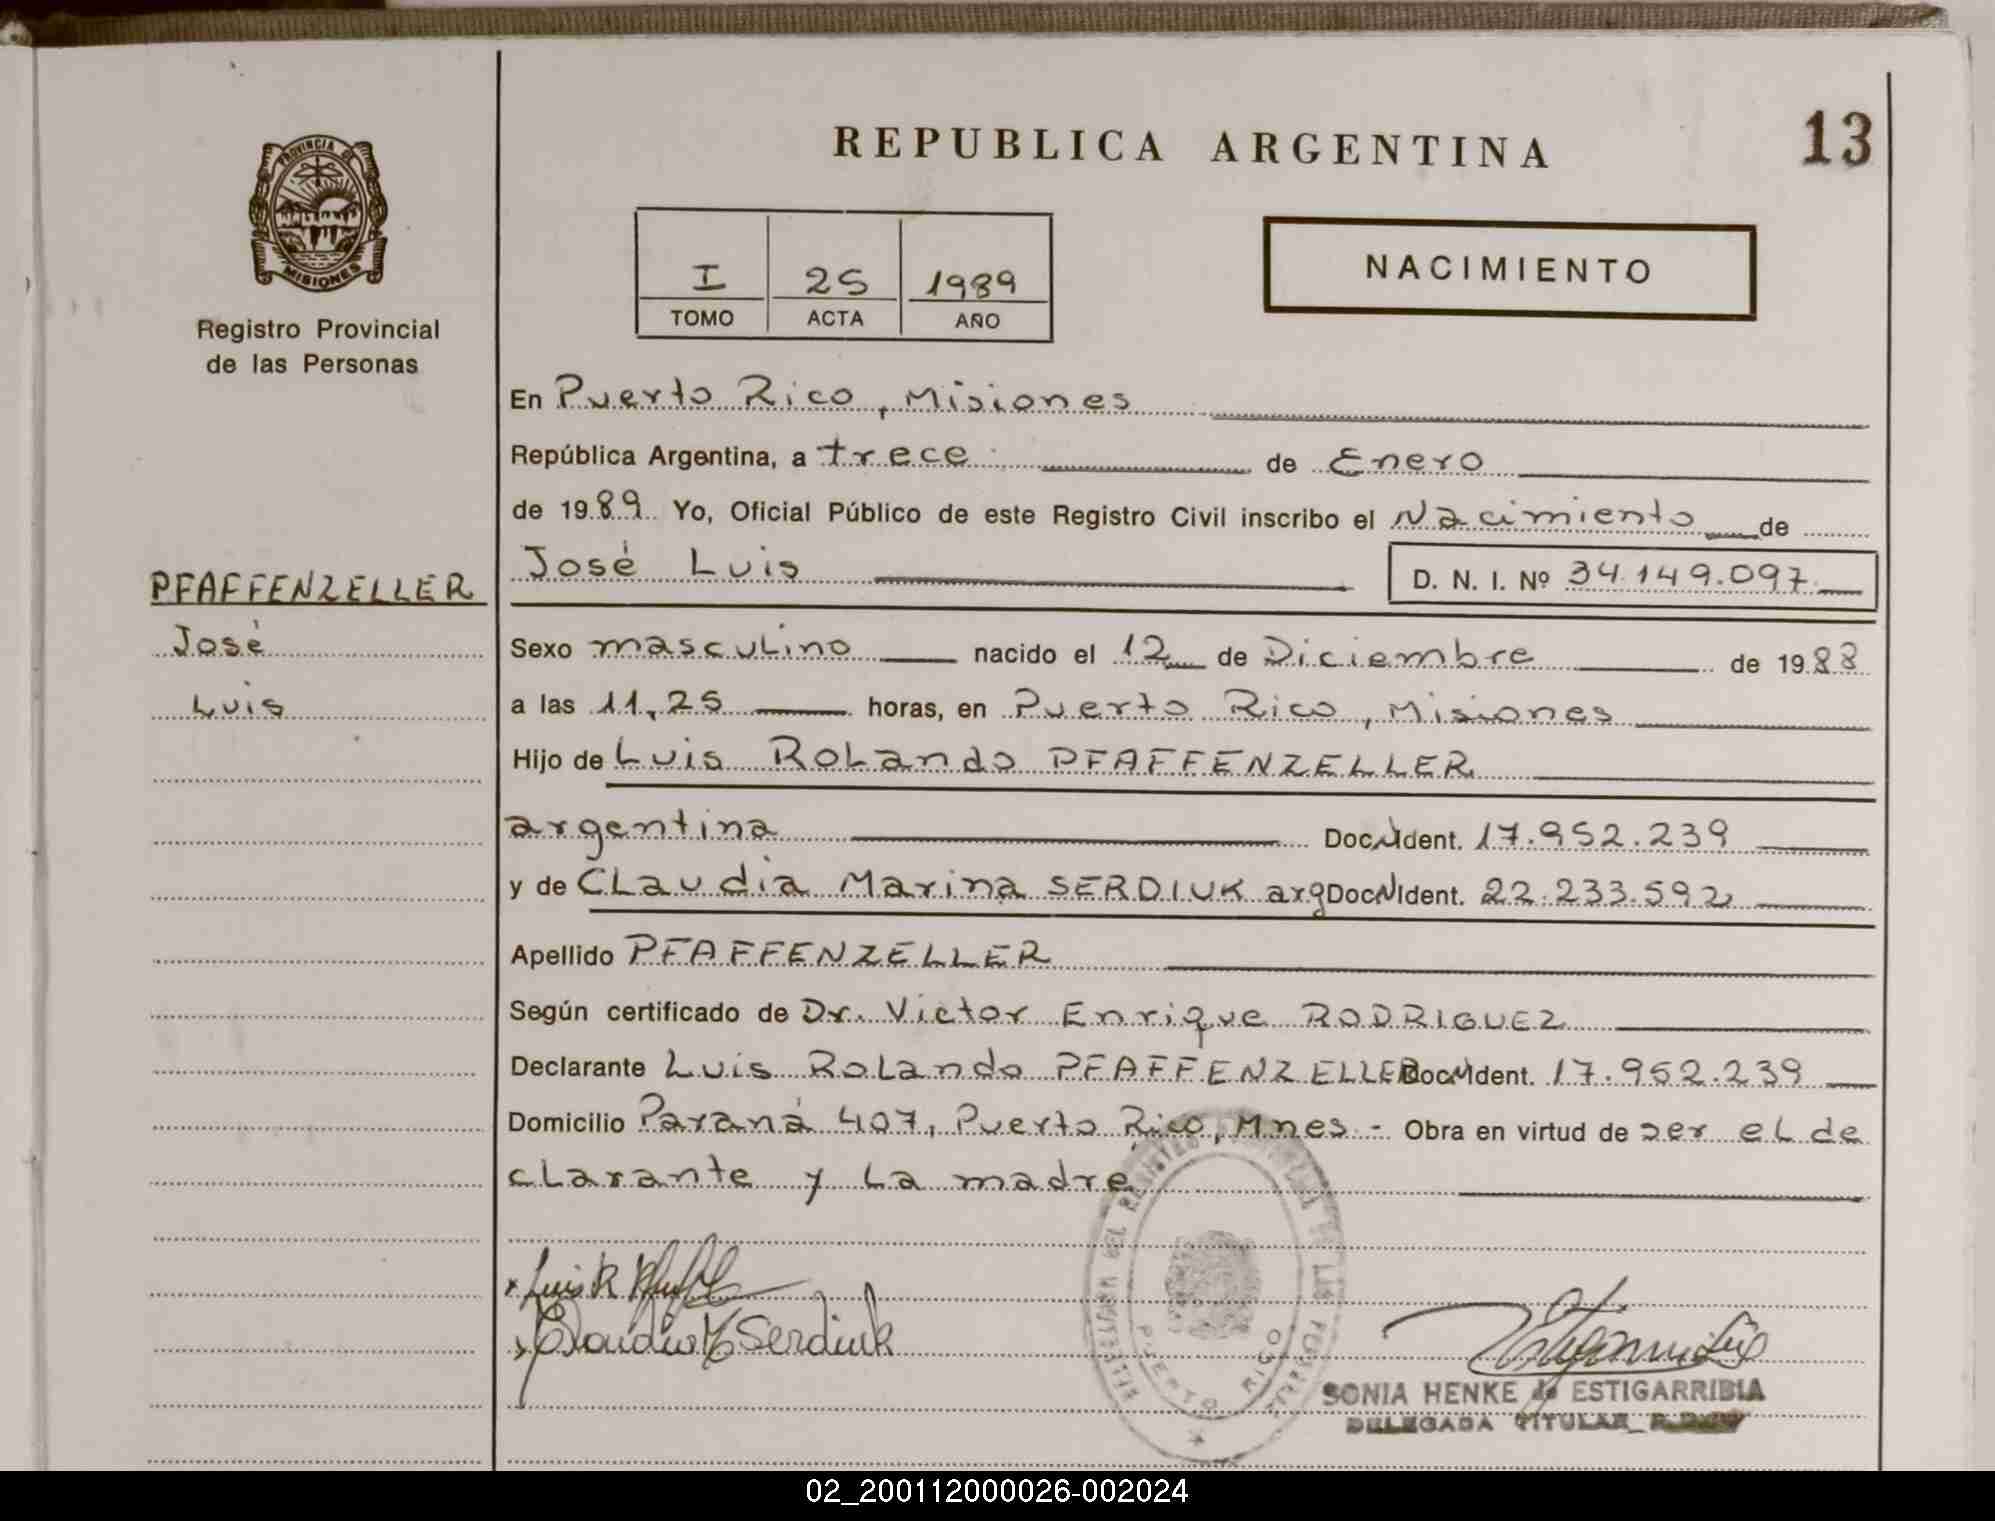 REPUBLICA ARGENTINA
13
PROVINCIA DE
MISIONES
Registro Provincial
de las Personas
I 25 1989
TOMO ACTA AÑO
NACIMIENTO
En Puerto Rico, Misiones
República Argentina, a trece de Enero
de 1989 Yo, Oficial Público de este Registro Civil inscribo el Nacimiento de
José Luis D. N. I. Nº 34.149.097
PFAFFENZELLER
José
Luis
Sexo masculino nacido el 12 de Diciembre de 1988
a las 11,25 horas, en Puerto Rico, Misiones
Hijo de Luis Rolando PFAFFENZELLER
argentina Doc.N.Ident. 17.952.239
y de Claudia Marina SERDIUK arg Doc.N.Ident. 22.233.592
Apellido PFAFFENZELLER
Según certificado de Dr. Victor Enrique RODRIGUEZ
Declarante Luis Rolando PFAFFENZELLER Doc.N.Ident. 17.952.239
Domicilio Paraná 407, Puerto Rico, Mnes - Obra en virtud de ser el de
clarante y la madre
Luis R
Claudia M Serdiuk
PUERTO RICO
SONIA HENKE de ESTIGARRIBIA
DELEGADA TITULAR
02_200112000026-002024